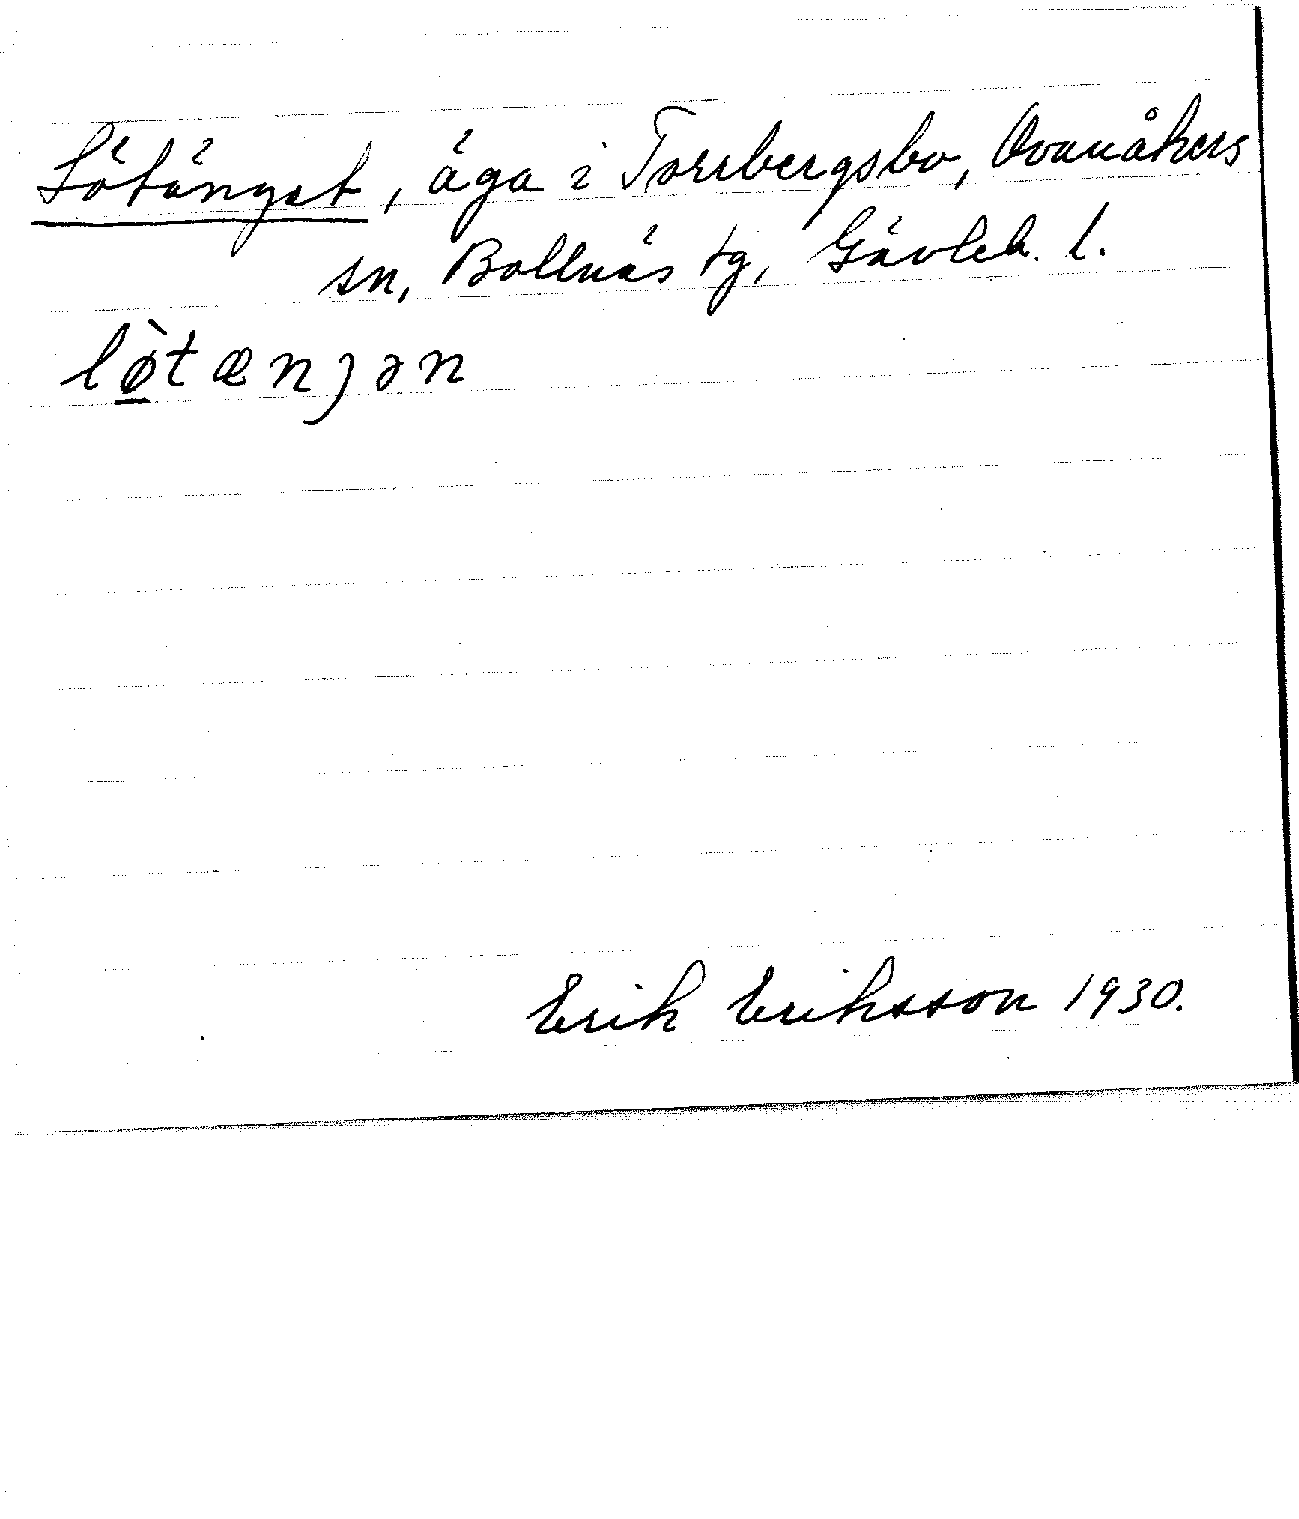 Lötänget, äga i Torrbergsbo, Ovanåkers
sn, Bollnäs tg, Gävleb. l.
lø̀tænȷən
Erik Eriksson 1930.